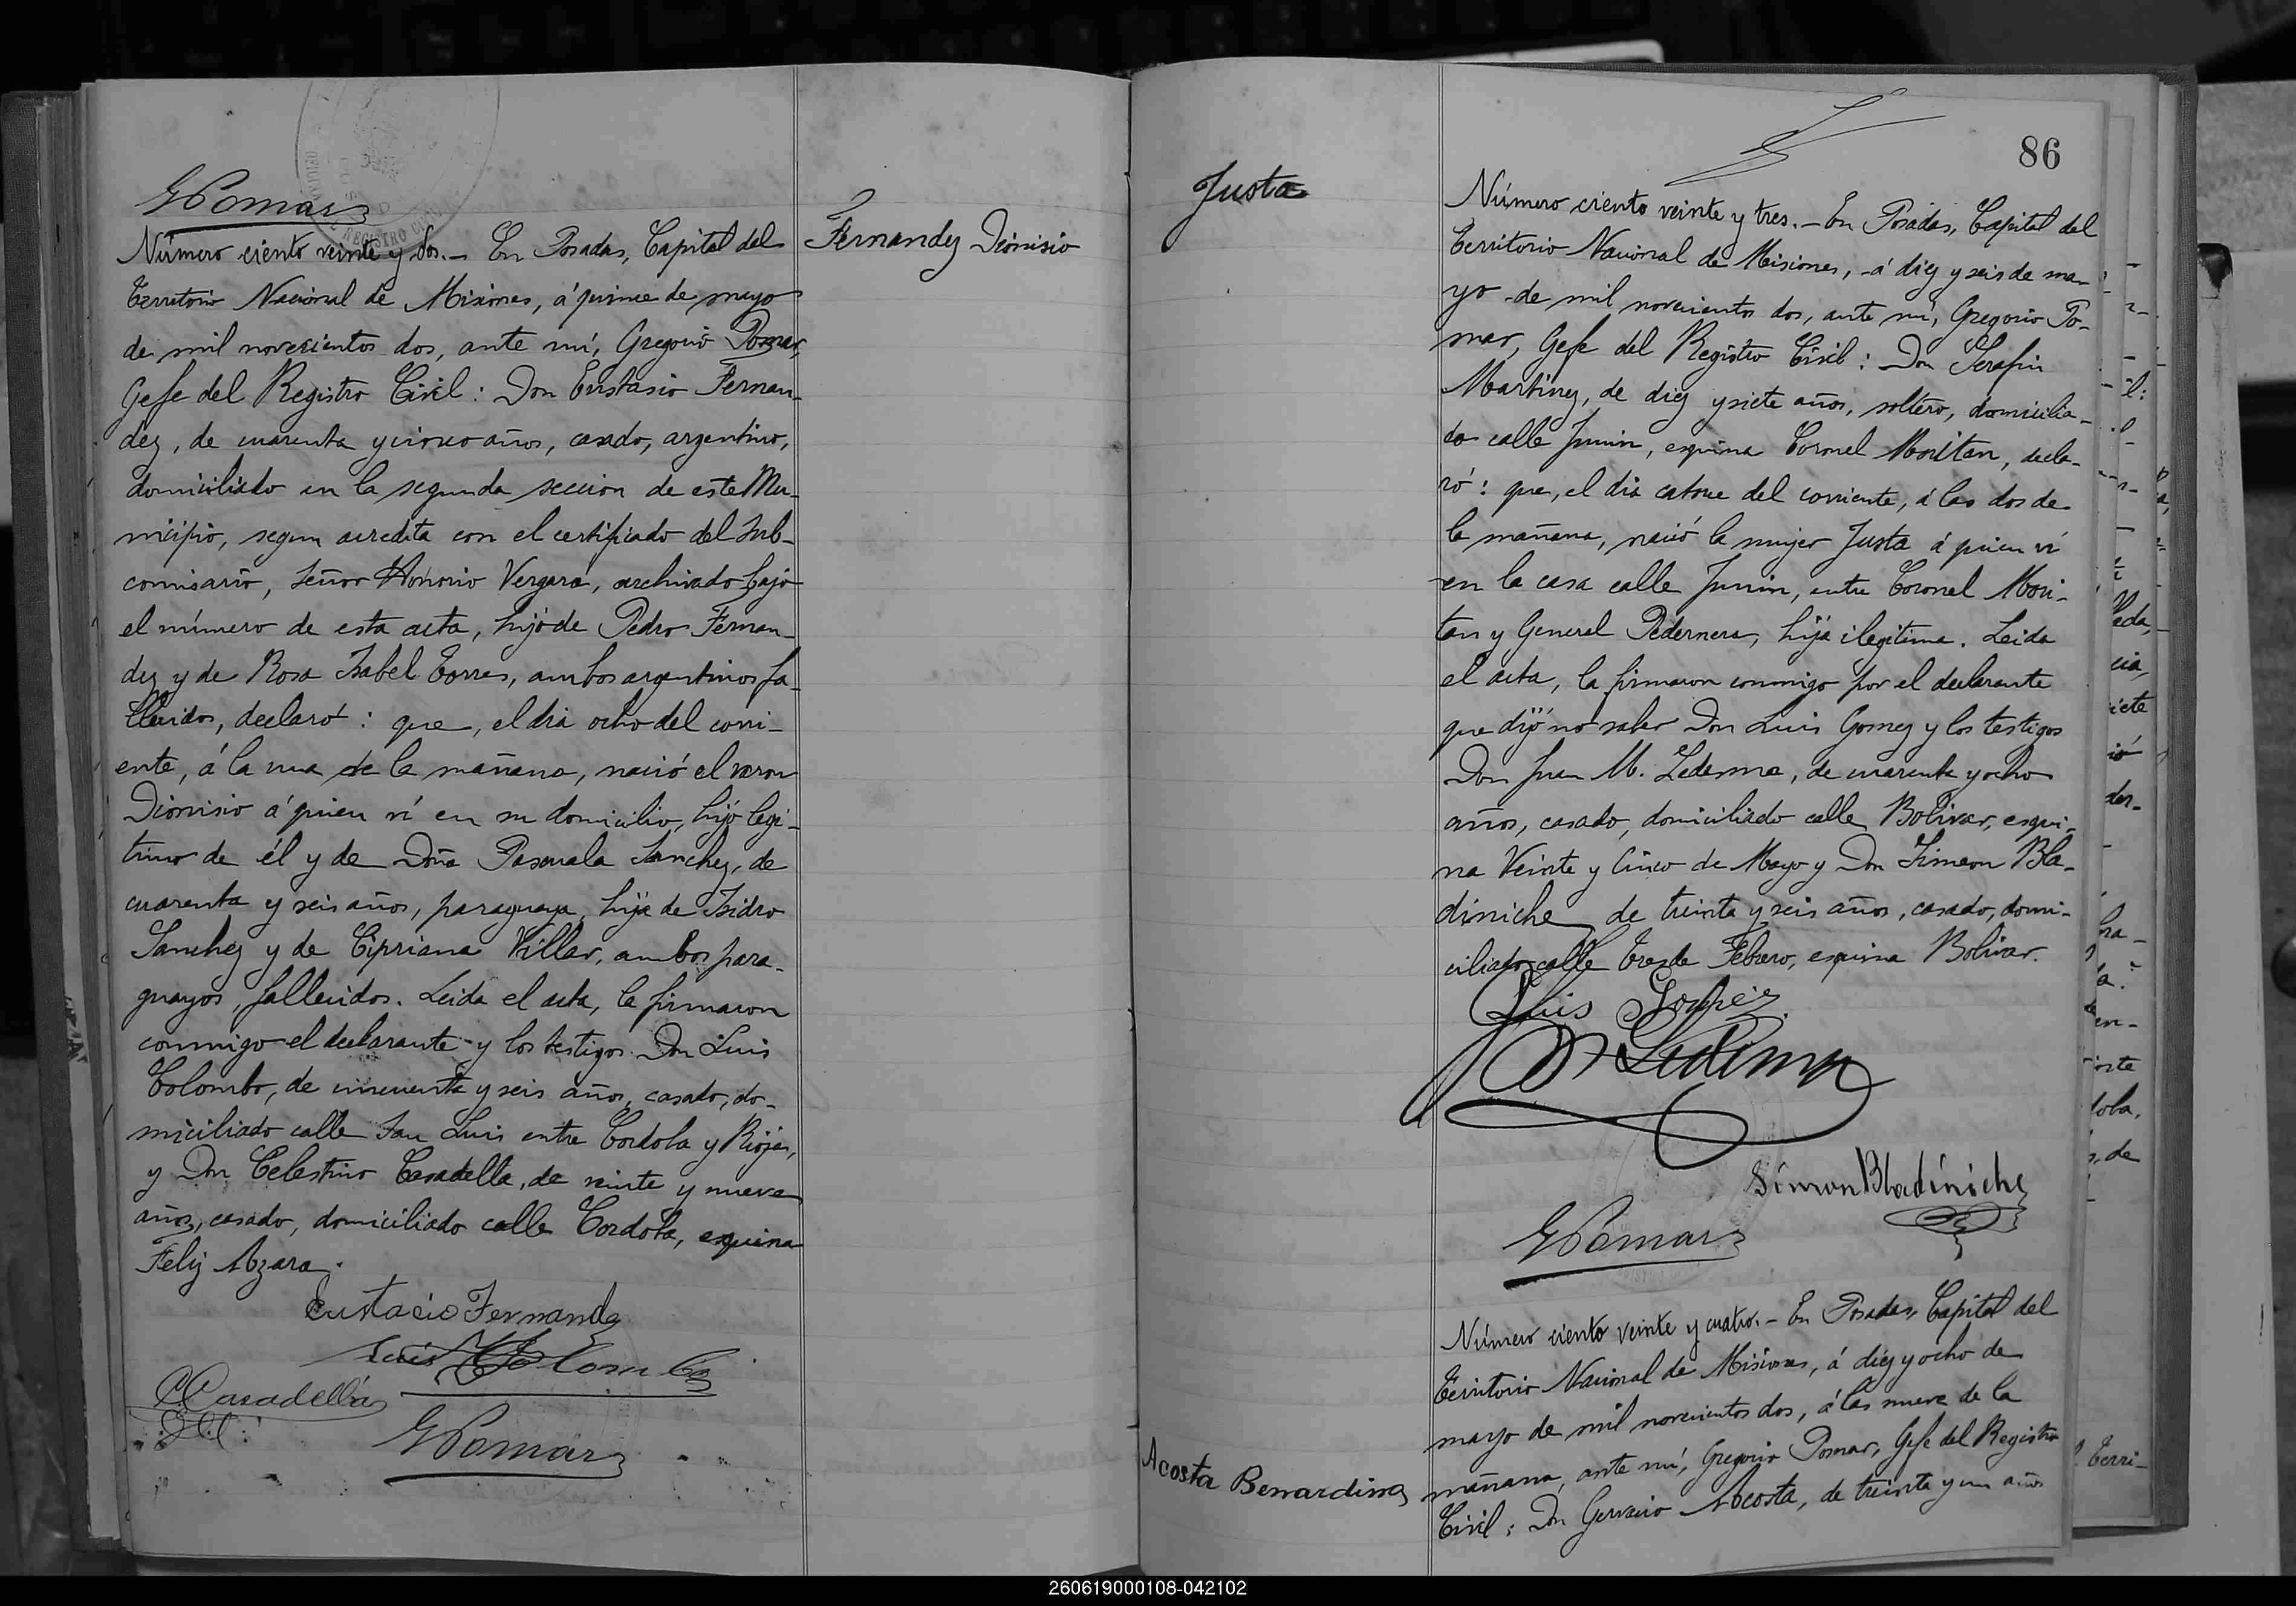 GPomar
Número ciento veinte y dos.- En Posadas, Capital del
Fernandez Dionisio
Territorio Nacional de Misiones, á quince de mayo
de mil novecientos dos, ante mí, Gregorio Pomar,
Gefe del Registro Civil: Don Eustasio Fernan-
dez, de cuarenta y cinco años, casado, argentino,
domiciliado en la segunda seccion de este Mu-
nicipio, segun acredita con el certificado del Sub-
comisario, Señor Honorio Vergara, archivado bajo
el número de esta acta, hijo de Pedro Fernan-
dez y de Rosa Isabel Torres, ambos argentinos fa-
llecidos, declaró: que, el dia ocho del corri-
ente, á la una de la mañana, nació el varon
Dionisio á quien ví en su domicilio, hijo legi-
timo de él y de Doña Pascuala Sanchez, de
cuarenta y seis años, paraguaya, hija de Isidro
Sanchez y de Cipriana Villar, ambos para-
guayos, fallecidos. Leida el acta, la firmaron
conmigo el declarante y los testigos Don Luis
Colombo, de cincuenta y seis años, casado, do-
miciliado calle San Luis entre Cordoba y Rioja,
y Don Celestino Casadella, de veinte y nueve
años, casado, domiciliado calle Cordoba, esquina
Feliz Azara.
Eustacio Fernandez
Luis Colombo
CCasadella
GPomar
86
Justa
Número ciento veinte y tres.- En Posadas, Capital del
Territorio Nacional de Misiones, á diez y seis de ma-
yo de mil novecientos dos, ante mí, Gregorio Po-
mar, Gefe del Registro Civil: Don Serafin
Martinez, de diez y siete años, soltero, domicilia-
do calle Junin, esquina Coronel Moritan, decla-
ró: que, el dia catorce del corriente, á las dos de
la mañana, nació la mujer Justa á quien ví
en la casa calle Junin, entre Coronel Mori-
tan y General Pedernera, hija ilegitima. Leida
el acta, la firmaron conmigo por el declarante
que dijo no saber Don Luis Gomez y los testigos
Don Juan M. Ledesma, de cuarenta y ocho
años, casado, domiciliado calle Bolivar, esqui-
na Veinte y Cinco de Mayo y Don Simeon Bla-
diniche de treinta y seis años, casado, domi-
ciliado calle Tres de Febrero, esquina Bolivar.
Luis Gomez
JM Ledesma
Simeon Bladiniche
GPomar
Número ciento veinte y cuatro.- En Posadas, Capital del
Territorio Nacional de Misiones, á diez y ocho de
mayo de mil novecientos dos, á las nueve de la
Acosta Bernardina
mañana, ante mí, Gregorio Pomar, Gefe del Registro
Civil: Don Gervacio Acosta, de treinta y un años
260619000108-042102